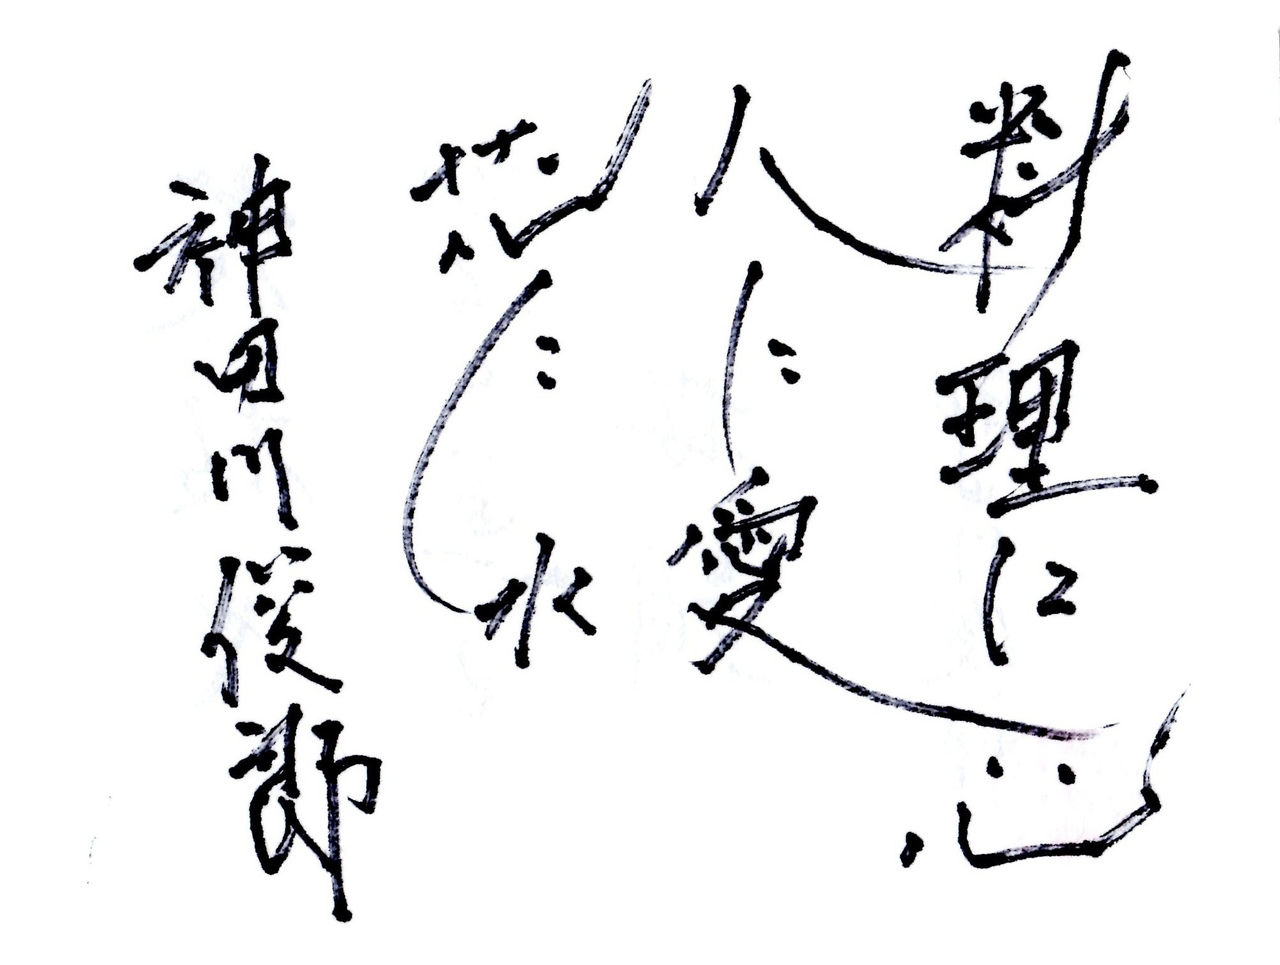 料理に心
人に愛
花に水
神田川俊郎